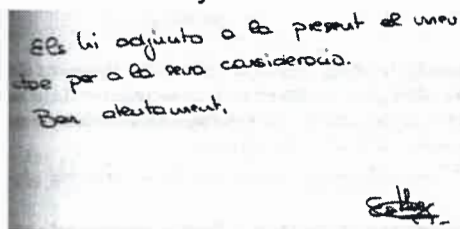 Els hi adjunto a la present el meu
per a la seva consideracio.
Ben atentament,